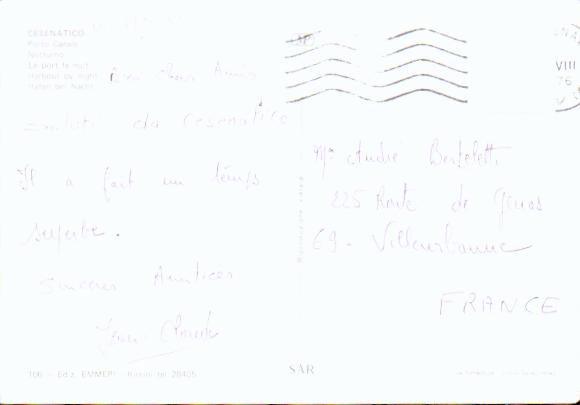 CESENATICO
Porto Canale
Notturno
Le port la nuit
Harbour by night
Hafen bei Nacht
Bien chers Amis
saluti da Cesenatico
Il a fait un temps
superbe.
Sinceres Amities
Jean Claude
106 - Ediz. EMMEPI - Rimini tel 28405
SAR
Riproduzione vietata
VIII
76
Mr André Berteletti
225 Route de Genas
69 - Villeurbanne
FRANCE